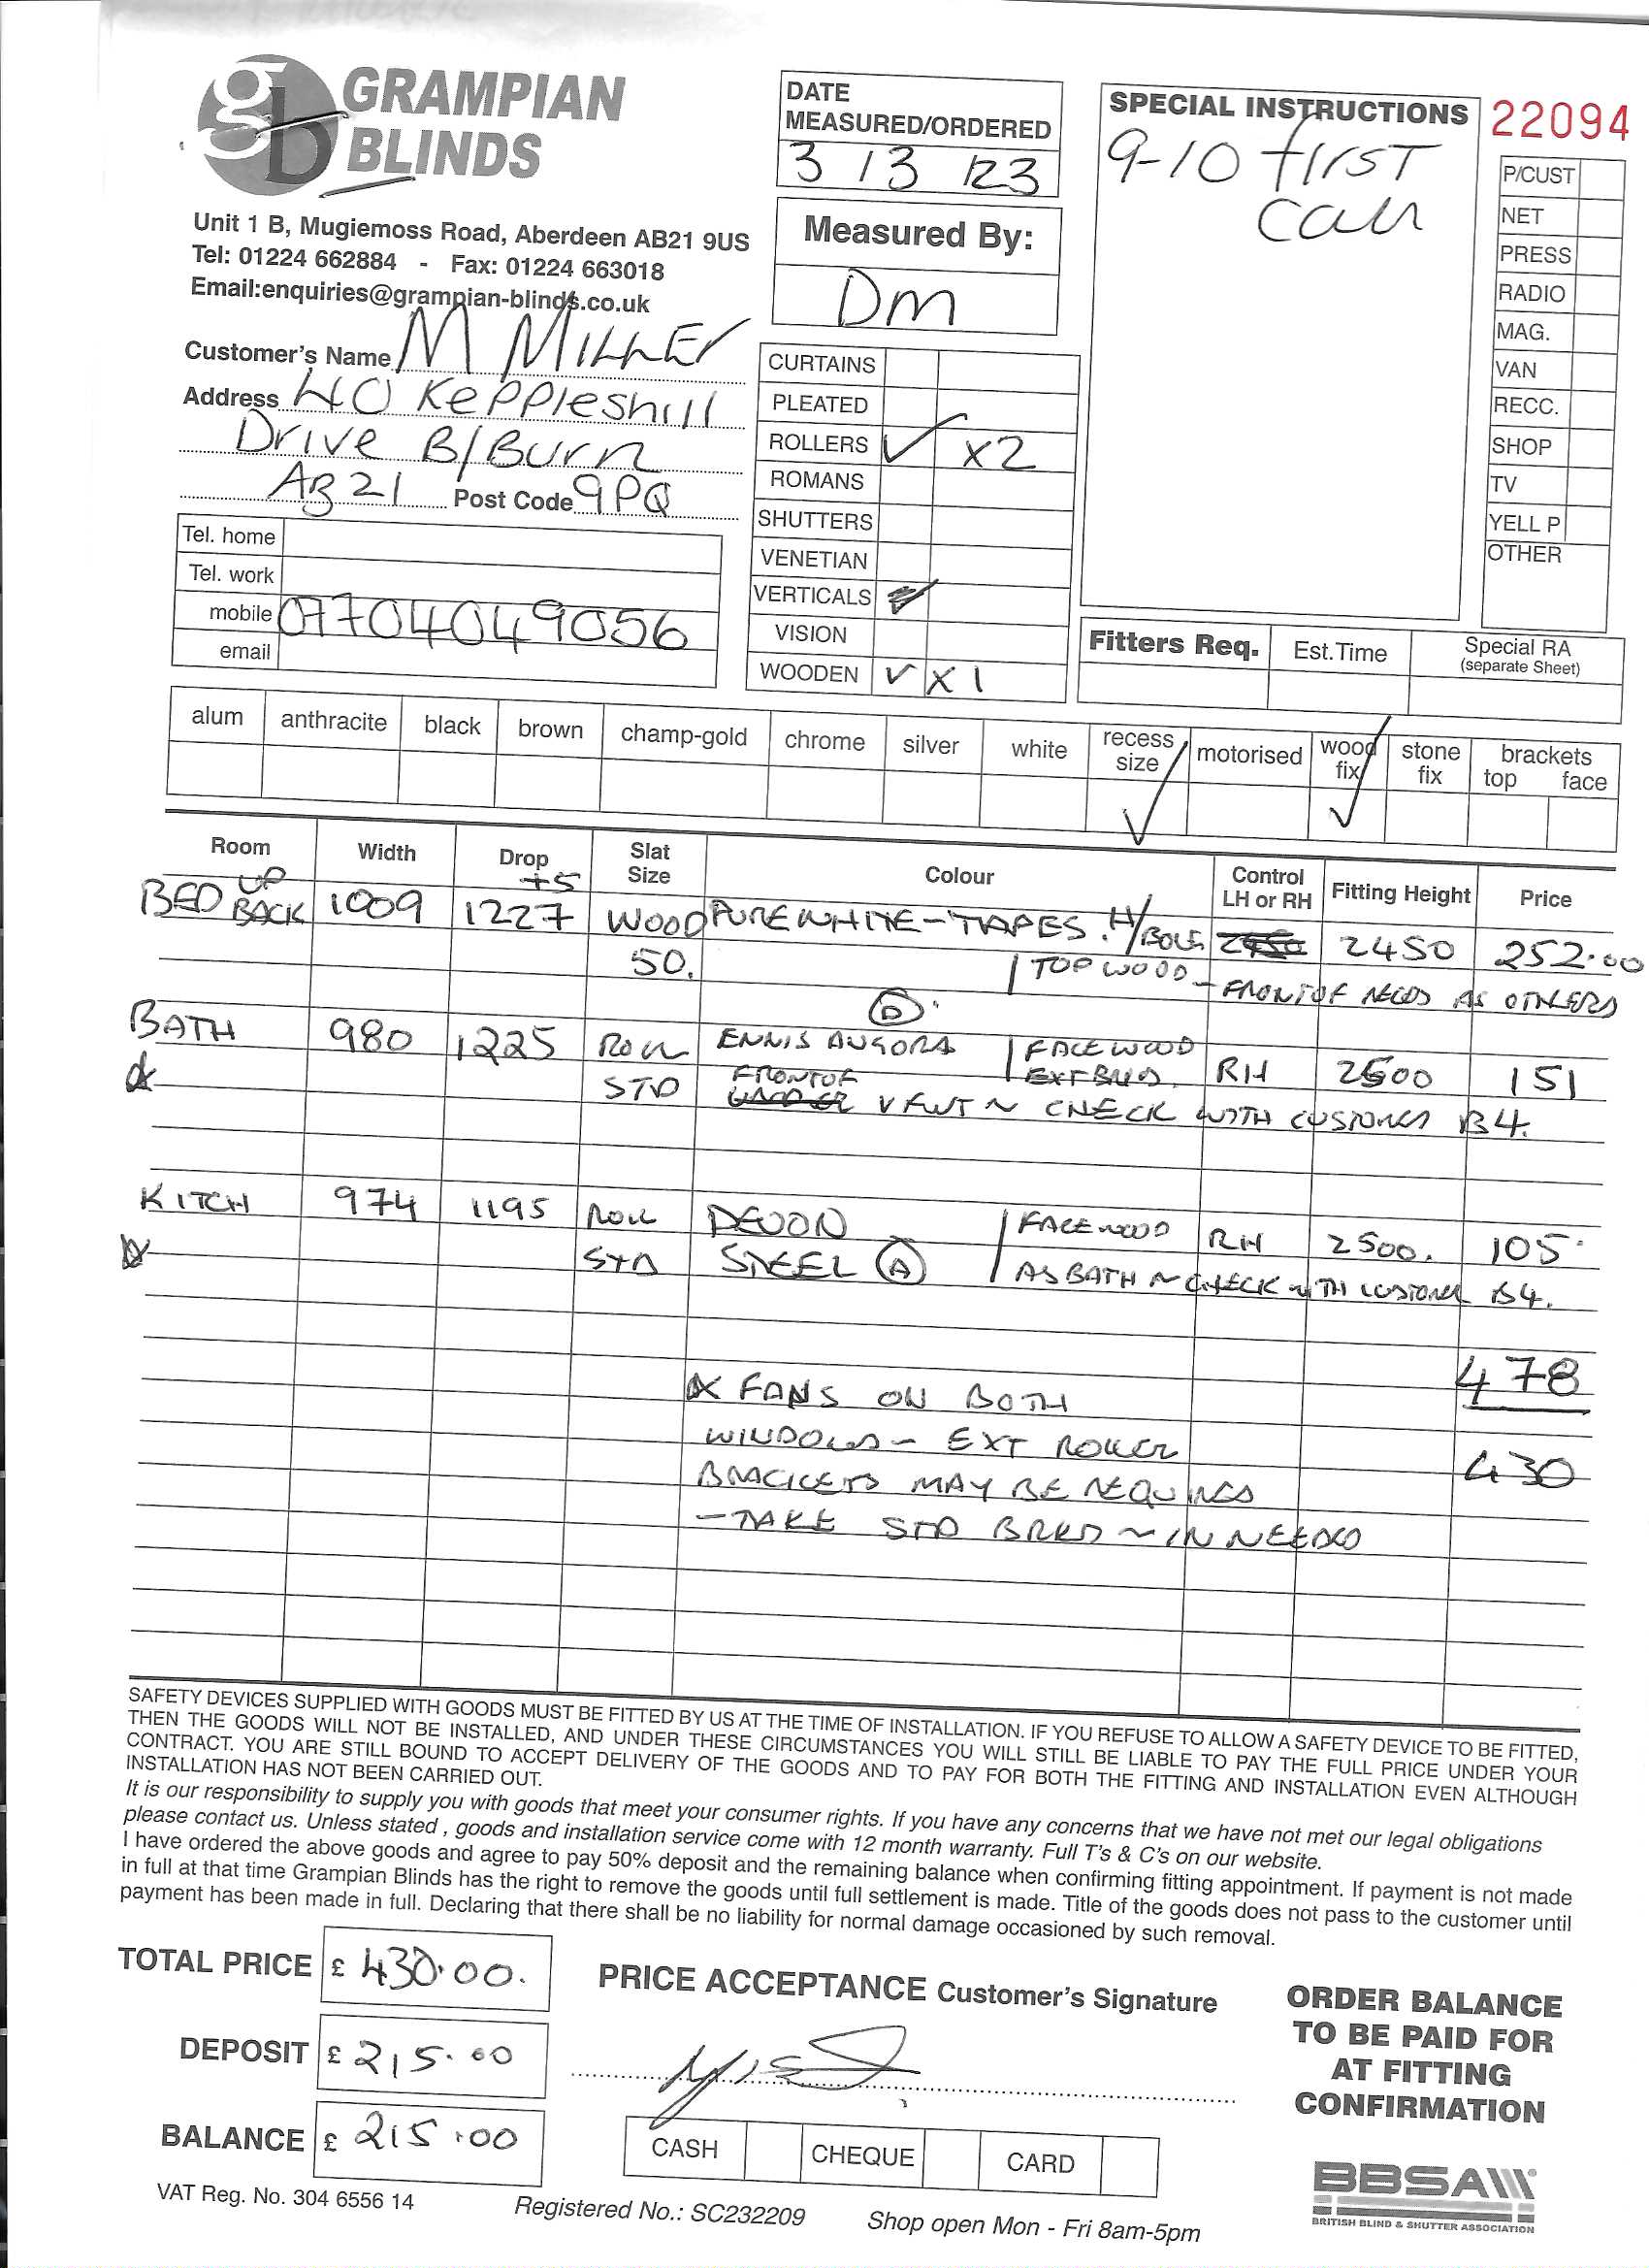 gb GRAMPIAN BLINDS
Unit 1 B, Mugiemoss Road, Aberdeen AB21 9US
Tel: 01224 662884 - Fax: 01224 663018
Email:enquiries@grampian-blinds.co.uk
Customer's Name M MILLER
Address 40 Keppleshill
Drive B/Burn
AB21 Post Code 9PQ
Tel. home
Tel. work
mobile 07704049056
email
DATE
MEASURED/ORDERED
3/3/23
Measured By:
DM
CURTAINS
PLEATED
ROLLERS ✓ x2
ROMANS
SHUTTERS
VENETIAN
VERTICALS
VISION
WOODEN ✓ x1
SPECIAL INSTRUCTIONS
9-10 first
call
22094
P/CUST
NET
PRESS
RADIO
MAG.
VAN
RECC.
SHOP
TV
YELL P
OTHER
Fitters Req. Est.Time Special RA
(separate Sheet)
alum anthracite black brown champ-gold chrome silver white recess size ✓ motorised wood fix ✓ stone fix brackets top face
Room Width Drop Slat Size Colour Control LH or RH Fitting Height Price
BED UP BACK 1009 1227 +5 WOOD PURE WHITE - TAPES. H/BOLE 2450 252.00
50. TOP WOOD - FRONT OF NECES AS OTHERS
BATH 980 1225 ROLL ENNIS ANGORA (D) FACE WOOD RH 2500 151
STD FRONT OF VENT ~ CHECK WITH CUSTOMER B4.
KITCH 974 1195 ROLL DEVON FACE WOOD RH 2500. 105
STD STEEL (A) AS BATH ~ CHECK WITH CUSTOMER B4.
478
FANS ON BOTH
430
WINDOWS - EXT ROLLER
BRACKETS MAY BE REQUIRED
- TAKE STD BRKD ~ IN NEEDED
SAFETY DEVICES SUPPLIED WITH GOODS MUST BE FITTED BY US AT THE TIME OF INSTALLATION. IF YOU REFUSE TO ALLOW A SAFETY DEVICE TO BE FITTED,
THEN THE GOODS WILL NOT BE INSTALLED, AND UNDER THESE CIRCUMSTANCES YOU WILL STILL BE LIABLE TO PAY THE FULL PRICE UNDER YOUR
CONTRACT. YOU ARE STILL BOUND TO ACCEPT DELIVERY OF THE GOODS AND TO PAY FOR BOTH THE FITTING AND INSTALLATION EVEN ALTHOUGH
INSTALLATION HAS NOT BEEN CARRIED OUT.
It is our responsibility to supply you with goods that meet your consumer rights. If you have any concerns that we have not met our legal obligations
please contact us. Unless stated , goods and installation service come with 12 month warranty. Full T's & C's on our website.
I have ordered the above goods and agree to pay 50% deposit and the remaining balance when confirming fitting appointment. If payment is not made
in full at that time Grampian Blinds has the right to remove the goods until full settlement is made. Title of the goods does not pass to the customer until
payment has been made in full. Declaring that there shall be no liability for normal damage occasioned by such removal.
TOTAL PRICE £ 430.00.
DEPOSIT £ 215.00
BALANCE £ 215.00
PRICE ACCEPTANCE Customer's Signature
CASH CHEQUE CARD
ORDER BALANCE
TO BE PAID FOR
AT FITTING
CONFIRMATION
BBSA
BRITISH BLIND & SHUTTER ASSOCIATION
VAT Reg. No. 304 6556 14
Registered No.: SC232209
Shop open Mon - Fri 8am-5pm